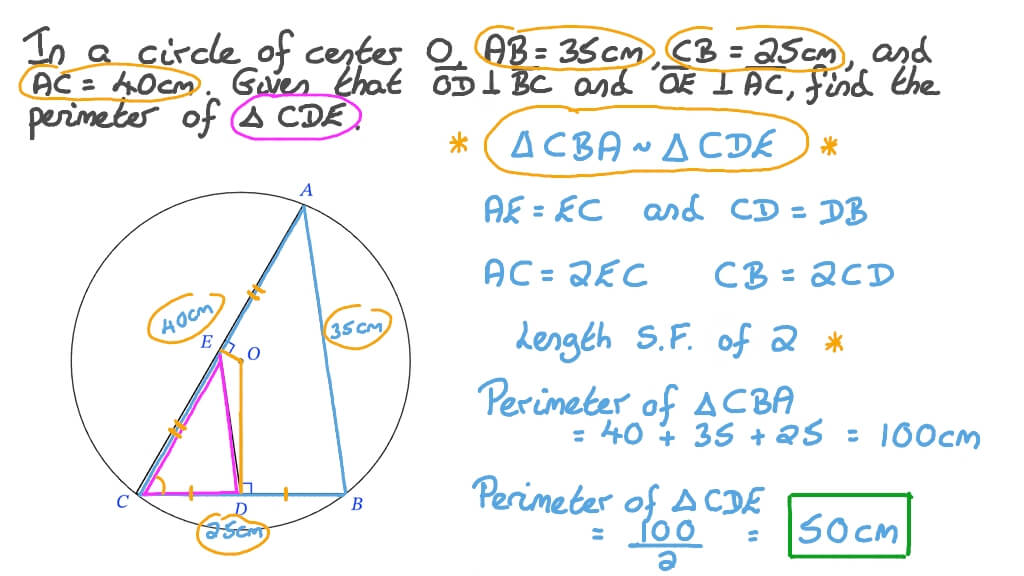 In a circle of center O, AB = 35cm, CB = 25cm, and
AC = 40cm. Given that OD ⊥ BC and OE ⊥ AC, find the
perimeter of △ CDE.
* △ CBA ~ △ CDE *
AE = EC and CD = DB
AC = 2EC CB = 2CD
Length S.F. of 2 *
Perimeter of △ CBA
= 40 + 35 + 25 = 100cm
Perimeter of △ CDE
= 100/2 = 50cm
A
40cm
35cm
E
O
C
D
B
25cm